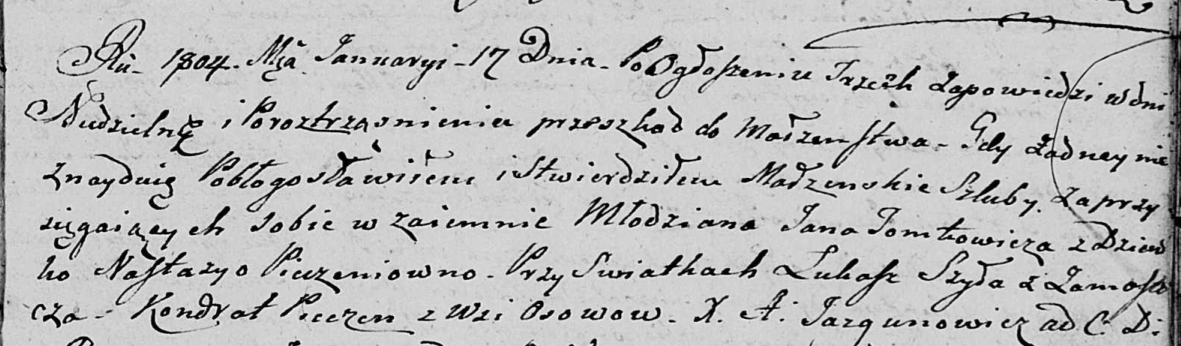 Ru- 1804. Mca Januaryi - 17 Dnia - Po Ogłoszeniu Trzech Zapowiedzi w dni
Niedzielnę i Poroztrząsnieniu przeszkod do Małzenstwa - Gdy Zadney nie
Znayduię Pobłogosławiłem i Stwierdziłem Małzenskie Szluby. Zaprzy
sięgaiących sobie w zaiemnie Młodziana Jana Tomkowicza z Dziew
ko Nastazyo Pieczeniowno - Przy Swiatkach Lukasz Szyła z Zamost
cza - Kondrat Pieczen z Wsi Osowow - X. A. Jazgunowicz ad C. D: